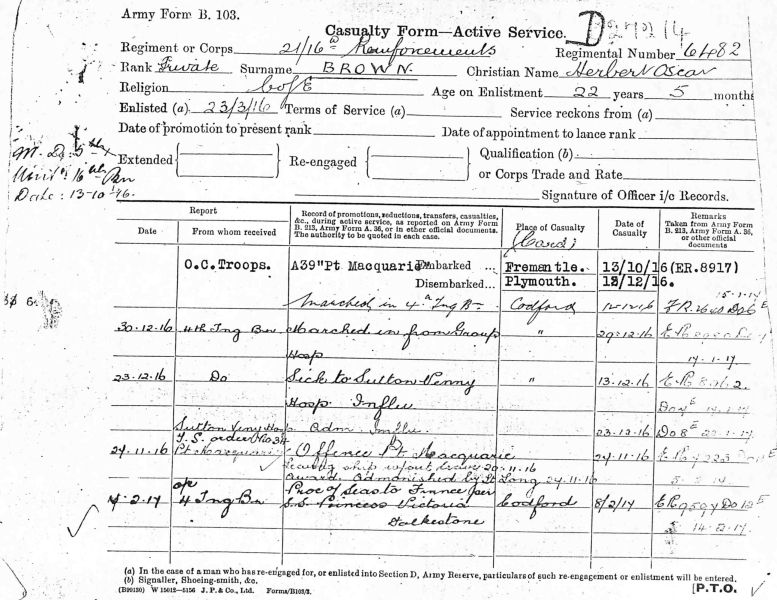 Army Form B. 103.
Casualty Form—Active Service.
Regiment or Corps 21/16th Reinforcements Regimental Number 6482
Rank Private Surname BROWN Christian Name Herbert Oscar
Religion C of E Age on Enlistment 22 years 5 months
Enlisted (a) 23/3/16 Terms of Service (a) Service reckons from (a)
Date of promotion to present rank Date of appointment to lance rank
Extended Re-engaged Qualification (b)
or Corps Trade and Rate
Signature of Officer i/c Records.
Date: 13-10-16.
Report
Date From whom received
Record of promotions, reductions, transfers, casualties,
&c., during active service, as reported on Army Form
B. 213, Army Form A. 36, or in other official documents.
The authority to be quoted in each case.
Place of Casualty
Date of
Casualty
Remarks
Taken from Army Form
B. 213, Army Form A. 36,
or other official
documents
O.C. Troops. A39"Pt Macquarie" Embarked ... Fremantle. 13/10/16 (ER.8917)
Disembarked ... Plymouth. 12/16.
Marched in 4th Tng Bn Codford
30.12.16 4th Tng Bn Marched in from Group " 29.12.16
Hosp
23.12.16 Do Sick to Sutton Venny " 13.12.16
Hosp Influ
Sutton Veny Hosp Adm Influ. 23.12.16
T.S. order No 34
24.11.16 Pt Macquarie Offence Pt Macquarie 24.11.16
Leaving ship w/out leave 20.11.16
award. Admonished by Lt Long 24.11.16
2.17 4 Tng Bn Proc o/seas to France per Codford 8/2/17
S.S. Princess Victoria
Folkestone 14.2.17.
(a) In the case of a man who has re-engaged for, or enlisted into Section D, Army Reserve, particulars of such re-engagement or enlistment will be entered.
(b) Signaller, Shoeing-smith, &c.
(B99130) W 15012—5156 J. P. & Co., Ltd. Forms/B103/3. [P.T.O.